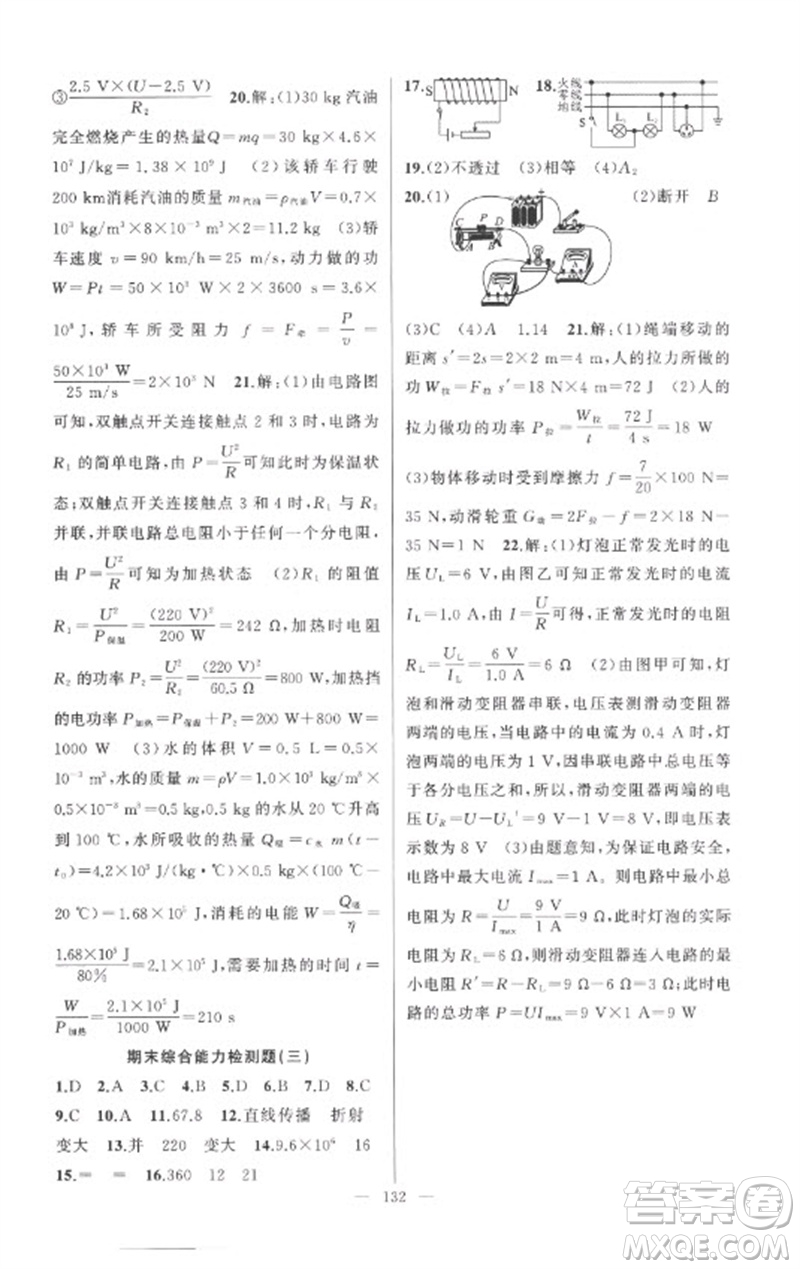 ③2.5 V×(U−2.5 V)/R₂  20.解:(1)30 kg 汽油
完全燃烧产生的热量Q=mq=30 kg×4.6×
10⁷ J/kg=1.38×10⁹ J  (2)该轿车行驶
200 km消耗汽油的质量 m汽油=ρ汽油V=0.7×
10³ kg/m³×8×10⁻³ m³×2=11.2 kg  (3)轿
车速度 v=90 km/h=25 m/s,动力做的功
W=Pt=50×10³ W×2×3600 s=3.6×
10⁸ J,轿车所受阻力 f=F牵=P/v=
50×10³ W/25 m/s=2×10³ N  21.解:(1)由电路图
可知,双触点开关连接触点 2 和 3 时,电路为
R₁ 的简单电路,由 P=U²/R可知此时为保温状
态;双触点开关连接 3 和 4 时,R₁ 与 R₂
并联,并联电路总电阻小于任何一个分电阻,
由 P=U²/R可知为加热状态  (2)R₁ 的阻值
R₁=U²/P保温=(220 V)²/200 W=242 Ω,加热时电阻
R₂ 的功率 P₂=U²/R₂=(220 V)²/60.5 Ω=800 W,加热挡
的电功率 P加热=P保温+P₂=200 W+800 W=
1000 W  (3)水的体积 V=0.5 L=0.5×
10⁻³ m³,水的质量 m=ρV=1.0×10³ kg/m³×
0.5×10⁻³ m³=0.5 kg,0.5 kg的水从20 ℃升高
到 100 ℃,水所吸收的热量 Q吸=c水 m(t−
t₀)=4.2×10³ J/(kg·℃)×0.5 kg×(100 ℃−
20 ℃)=1.68×10⁵ J,消耗的电能 W=Q吸/η=
1.68×10⁵ J/80%=2.1×10⁵ J,需要加热的时间 t=
W/P加热=2.1×10⁵ J/1000 W=210 s
期末综合能力检测题(三)
1.D  2.A  3.C  4.B  5.D  6.B  7.D  8.C
9.C  10.A  11.67.8  12.直线传播  折射
变大  13.并  220  变大  14.9.6×10⁶  16
15.=  =  16.360  12  21
17.  S  N  18.  火线
零线
地线
S  L₁  L₂
19.(2)不透过  (3)相等  (4)A₂
20.(1)  (2)断开  B
C  P  D
A  B
(3)C  (4)A  1.14  21.解:(1)绳端移动的
距离 s′=2s=2×2 m=4 m,人的拉力所做的
功 W拉=F拉 s′=18 N×4 m=72 J  (2)人的
拉力做功的功率 P拉=W拉/t=72 J/4 s=18 W
(3)物体移动时受到摩擦力 f=7/20×100 N=
35 N,动滑轮重 G动=2F拉−f=2×18 N−
35 N=1 N  22.解:(1)灯泡正常发光时的电
压 UL=6 V,由图乙可知,正常发光时的电流
IL=1.0 A,由 I=U/R可得,正常发光时的电阻
RL=UL/IL=6 V/1.0 A=6 Ω  (2)由图甲可知,灯
泡和滑动变阻器串联,电压表测滑动变阻器
两端的电压,当电路中的电流为 0.4 A 时,灯
泡两端的电压为 1 V,因串联电路中总电压等
于各分电压之和,所以,滑动变阻器两端的电
压 UR=U−UL′=9 V−1 V=8 V,即电压表
示数为 8 V  (3)由题意知,为保证电路安全,
电路中最大电流 Imax=1 A。则电路中最小总
电阻为 R=U/Imax=9 V/1 A=9 Ω,此时灯泡的实际
电阻为 RL=6 Ω,则滑动变阻器连入电路的最
小电阻 R′=R−RL=9 Ω−6 Ω=3 Ω,此时电
路的总功率 P=UImax=9 V×1 A=9 W
— 132 —
答案卷
MXQE.COM